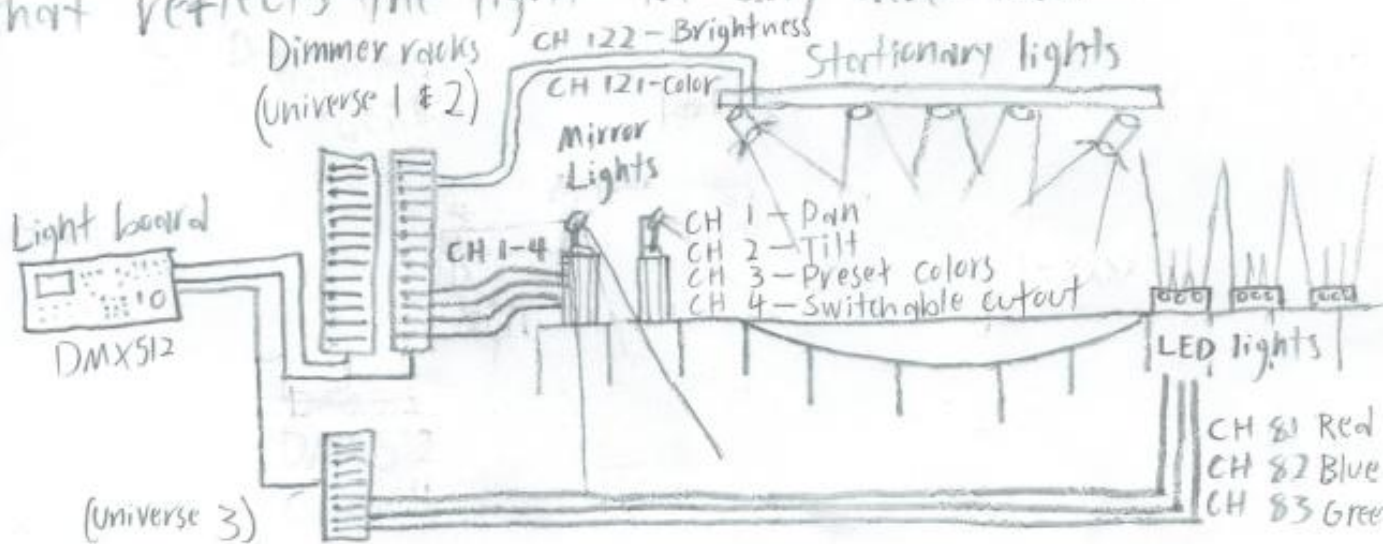 that reflects the light
Dimmer racks
(universe 1 & 2)
CH 122 - Brightness
CH 121 - Color
Stationary lights
Mirror
Lights
Light board
DMX512
CH 1-4
CH 1 - Pan
CH 2 - Tilt
CH 3 - Preset colors
CH 4 - Switchable cutout
LED lights
CH 81 Red
CH 82 Blue
CH 83 Gree
(universe 3)